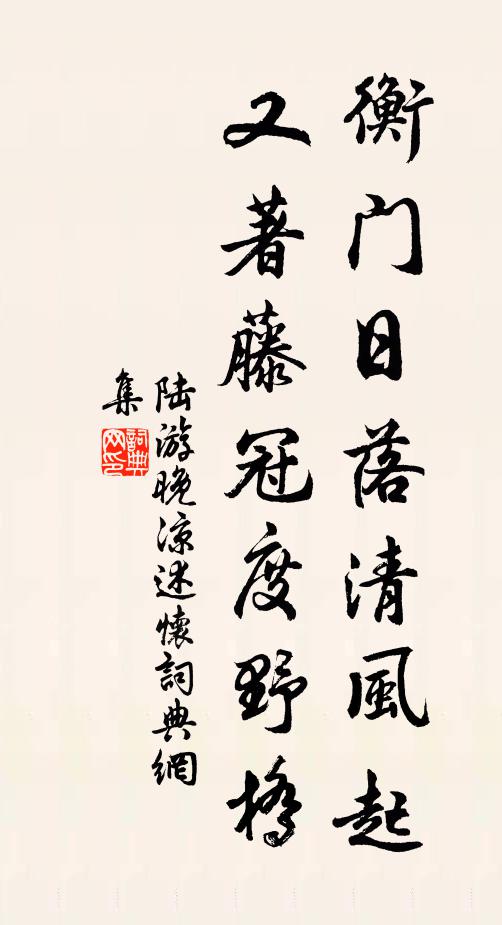 衡门日落清風起
又著藤冠度野橋
陆游晚凉述懷詞典網
集
詞典网印